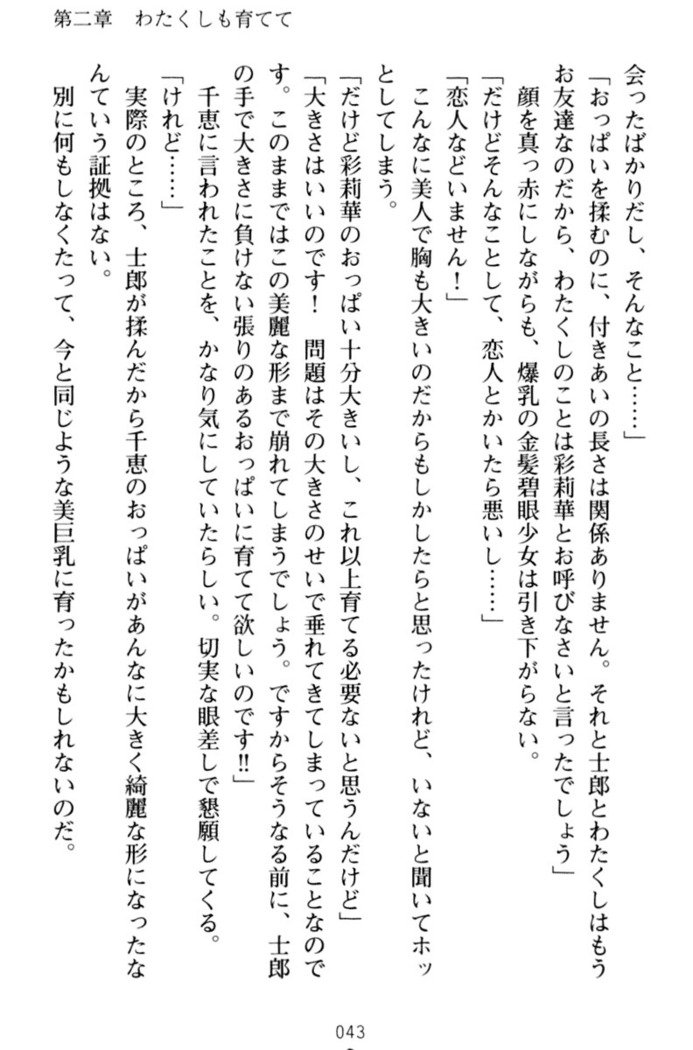 第二章　わたくしも育てて
会ったばかりだし、そんなこと……」
「おっぱいを揉むのに、付きあいの長さは関係ありません。それと士郎とわたくしはもう
お友達なのだから、わたくしのことは彩莉華とお呼びなさいと言ったでしょう」
　顔を真っ赤にしながらも、爆乳の金髪碧眼少女は引き下がらない。
「だけどそんなことして、恋人とかいたら悪いし……」
「恋人などいません！」
　こんなに美人で胸も大きいのだからもしかしたらと思ったけれど、いないと聞いてホッ
としてしまう。
「だけど彩莉華のおっぱい十分大きいし、これ以上育てる必要ないと思うんだけど」
「大きさはいいのです！　問題はその大きさのせいで垂れてきてしまっていることなので
す。このままではこの美麗な形まで崩れてしまうでしょう。ですからそうなる前に、士郎
の手で大きさに負けない張りのあるおっぱいに育てて欲しいのです!!」
　千恵に言われたことを、かなり気にしていたらしい。切実な眼差しで懇願してくる。
「けれど……」
　実際のところ、士郎が揉んだから千恵のおっぱいがあんなに大きく綺麗な形になったな
んていう証拠はない。
　別に何もしなくたって、今と同じような美巨乳に育ったかもしれないのだ。
043